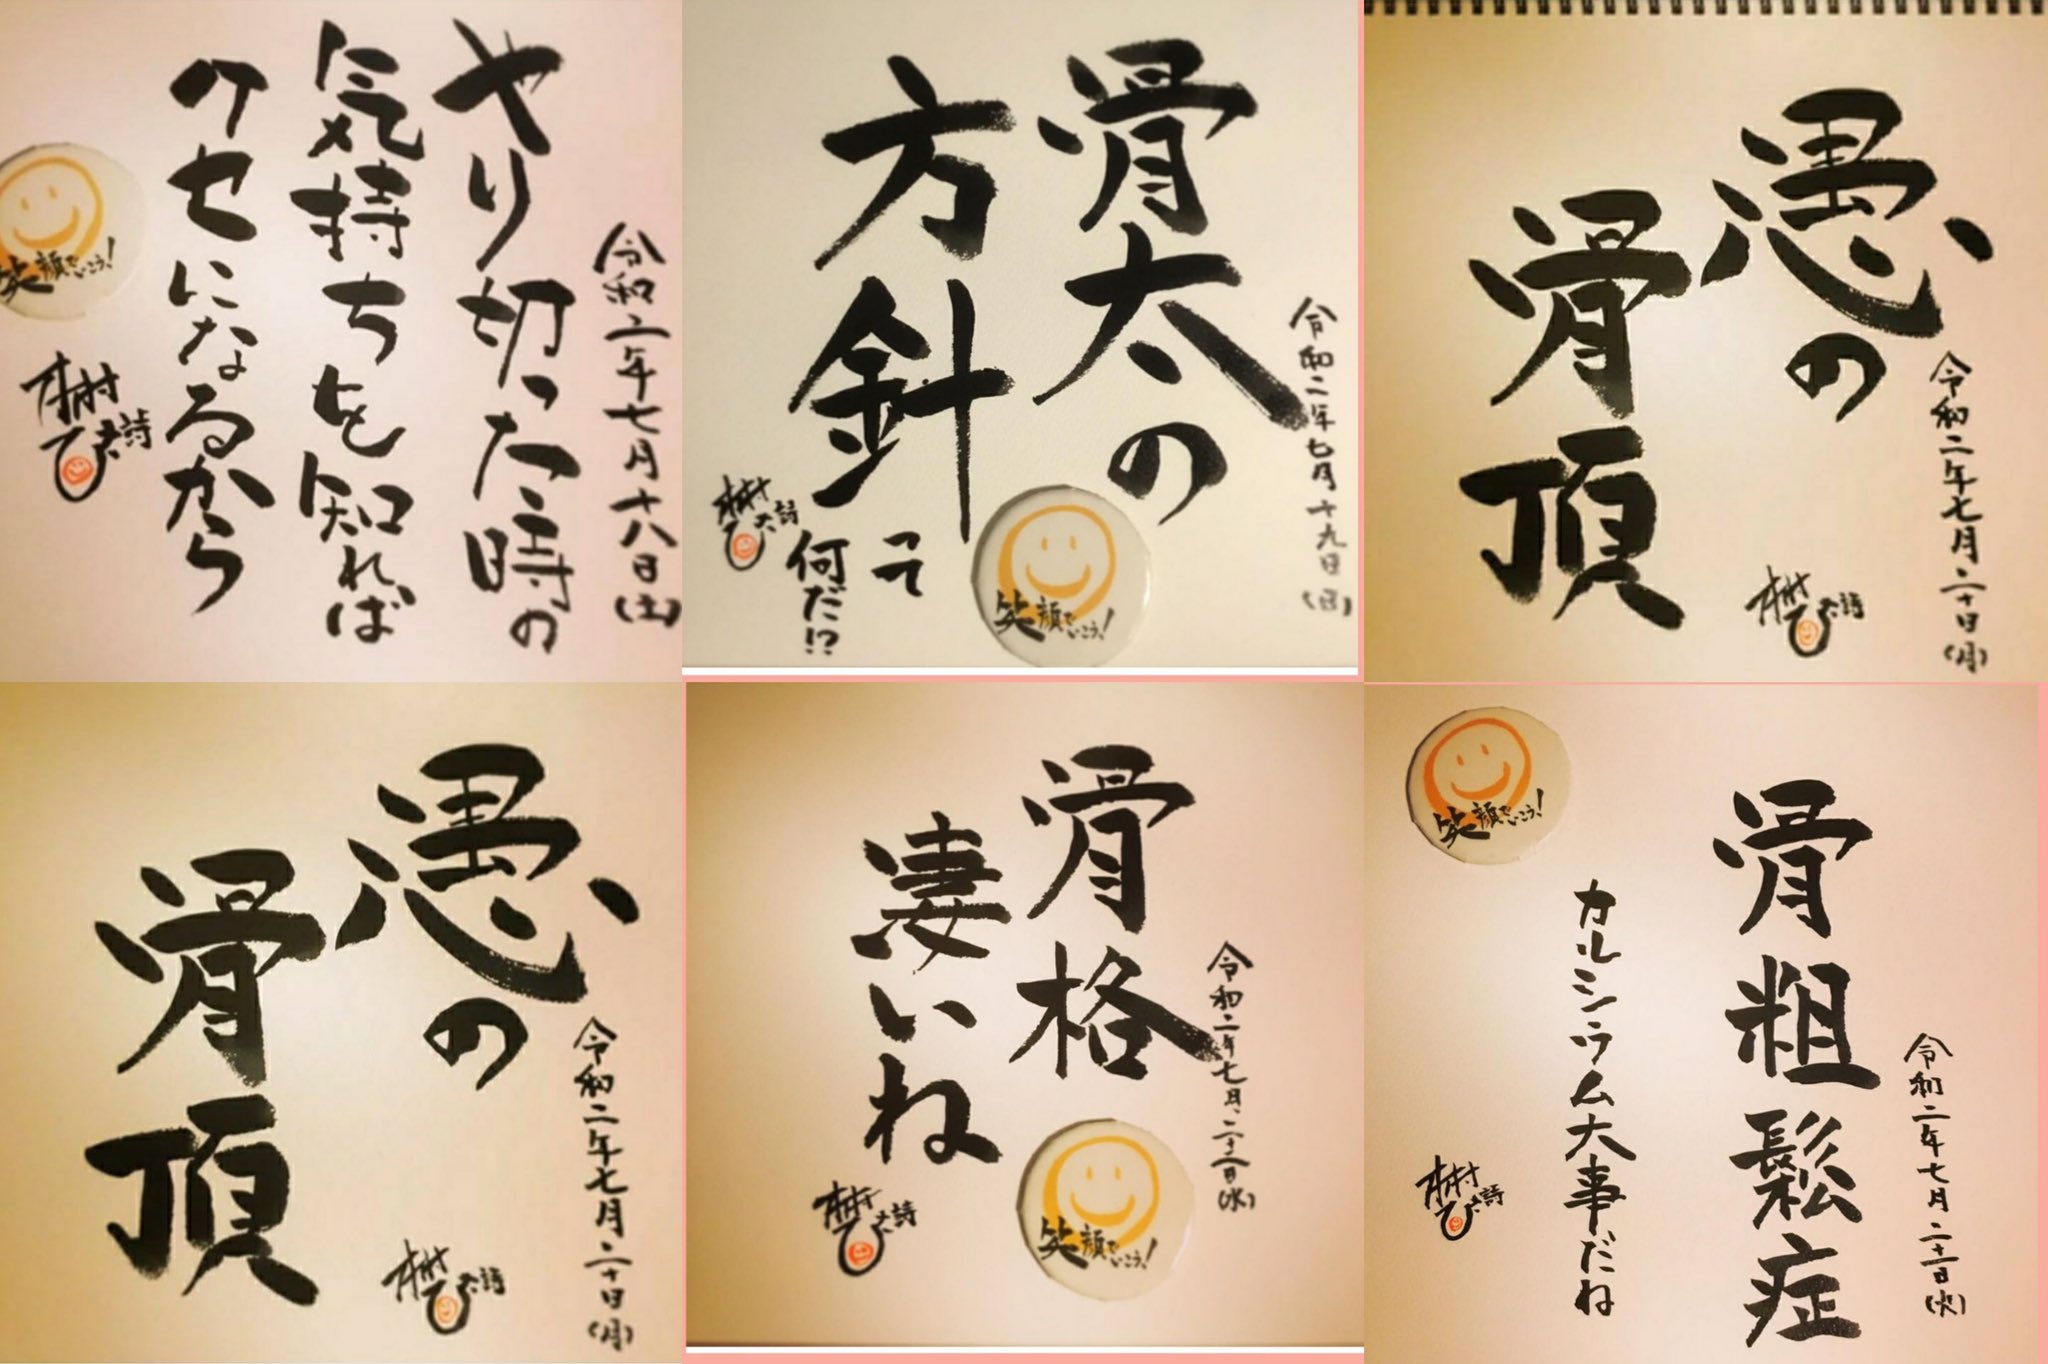 令和二年七月十八日(土)
やり切った時の
気持ちを知れば
クセになるから
笑顔でいこう!
詩
令和二年七月十九日(日)
骨太の
方針って
何だ!?
笑顔でいこう!
詩
令和二年七月二十日(月)
愚の
骨頂
詩
令和二年七月二十日(月)
愚の
骨頂
詩
令和二年七月二十二日(水)
骨格
凄いね
笑顔でいこう!
詩
令和二年七月二十一日(火)
骨粗鬆症
カルシウム大事だね
笑顔でいこう!
詩